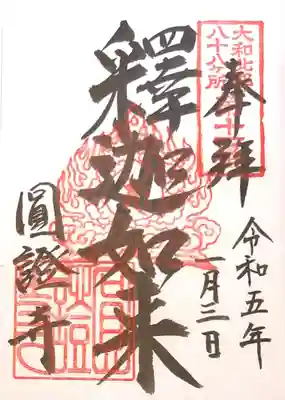 奉拝
大和北部
八十八ヶ所
令和五年
一月三日
釋迦如来
圓證寺